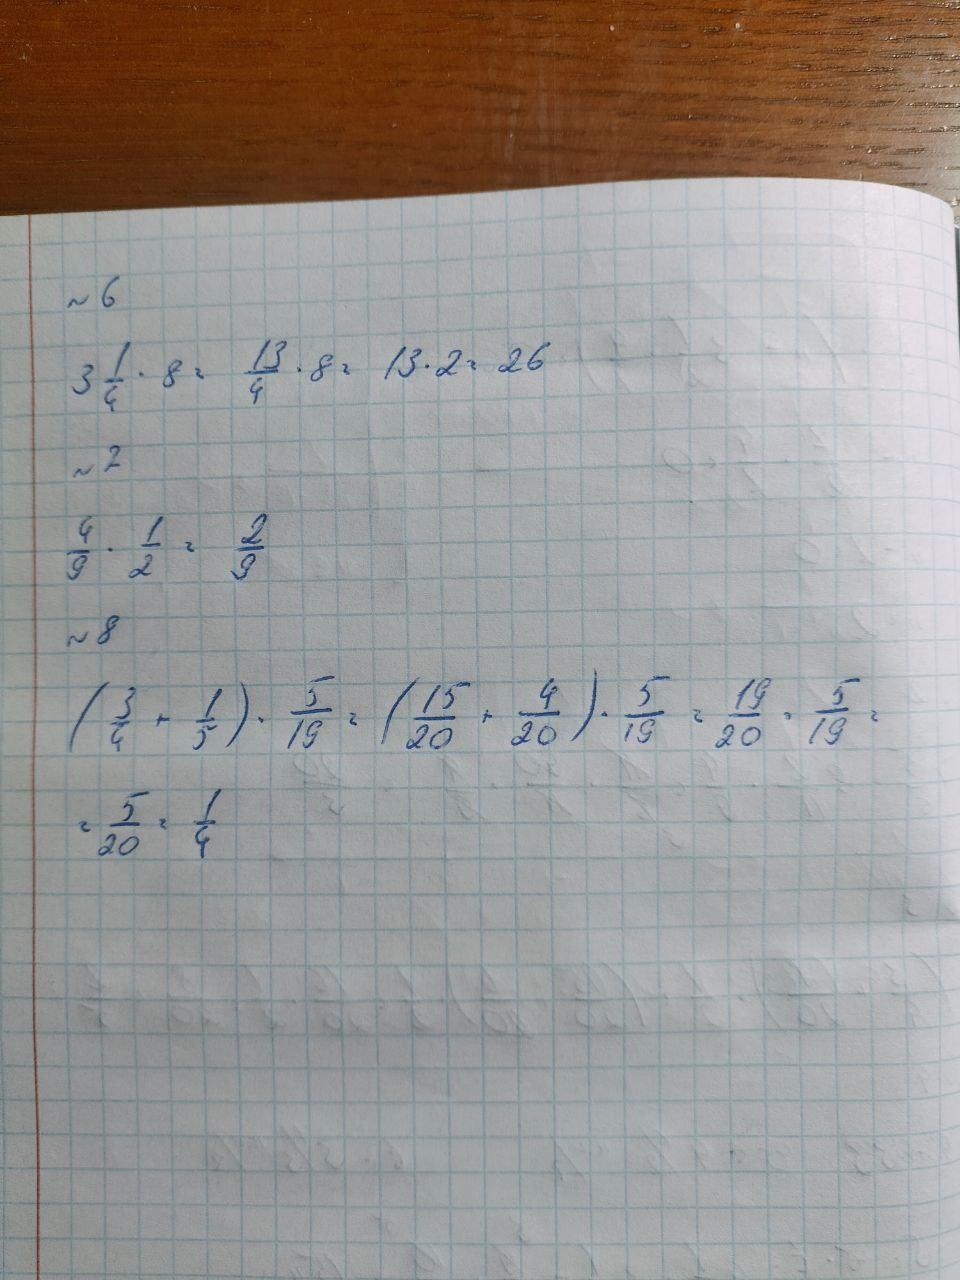 ~ 6
3 1/4 · 8 = 13/4 · 8 = 13 · 2 = 26
~ 7
4/9 · 1/2 = 2/9
~ 8
(3/4 + 1/5) · 5/19 = (15/20 + 4/20) · 5/19 = 19/20 · 5/19 =
= 5/20 = 1/4